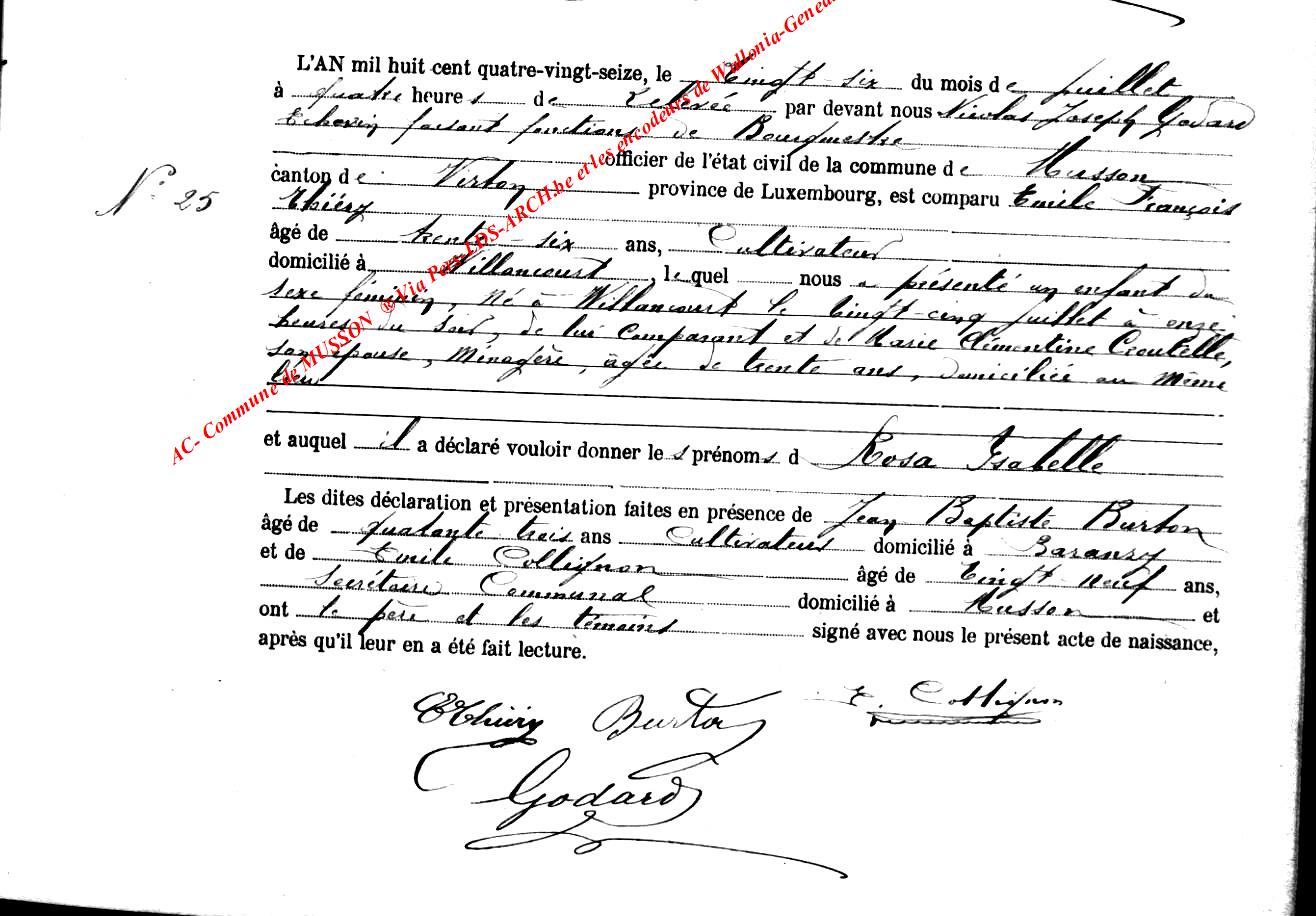 L'AN mil huit cent quatre-vingt-seize, le vingt-six du mois de juillet
à quatre heures de relevée par devant nous Nicolas Joseph Godard
Echevin faisant fonctions de Bourgmestre
officier de l'état civil de la commune de Musson
canton de Virton province de Luxembourg, est comparu Emile François
N° 25
Thiéry
âgé de trente-six ans, Cultivateur
domicilié à Willancourt, lequel nous a présenté un enfant du
sexe féminin, né à Willancourt le vingt-cinq juillet à onze
heures du soir, de lui comparant et de Marie Clémentine
son épouse, Ménagère, âgée de trente ans, domiciliée au même
lieu
et auquel il a déclaré vouloir donner les prénoms d Rosa Isabelle
Les dites déclaration et présentation faites en présence de Jean Baptiste Burton
âgé de quarante trois ans Cultivateur domicilié à Baranzy
et de Emile Collignon âgé de vingt neuf ans,
secrétaire Communal domicilié à Musson et
ont le père et les témoins signé avec nous le présent acte de naissance,
après qu'il leur en a été fait lecture.
EThiéry Burton E. Collignon
Godard
AC- Commune de MUSSON ® Via Pers LDS-ARCH.be et les encodeurs de Wallonia-Genea